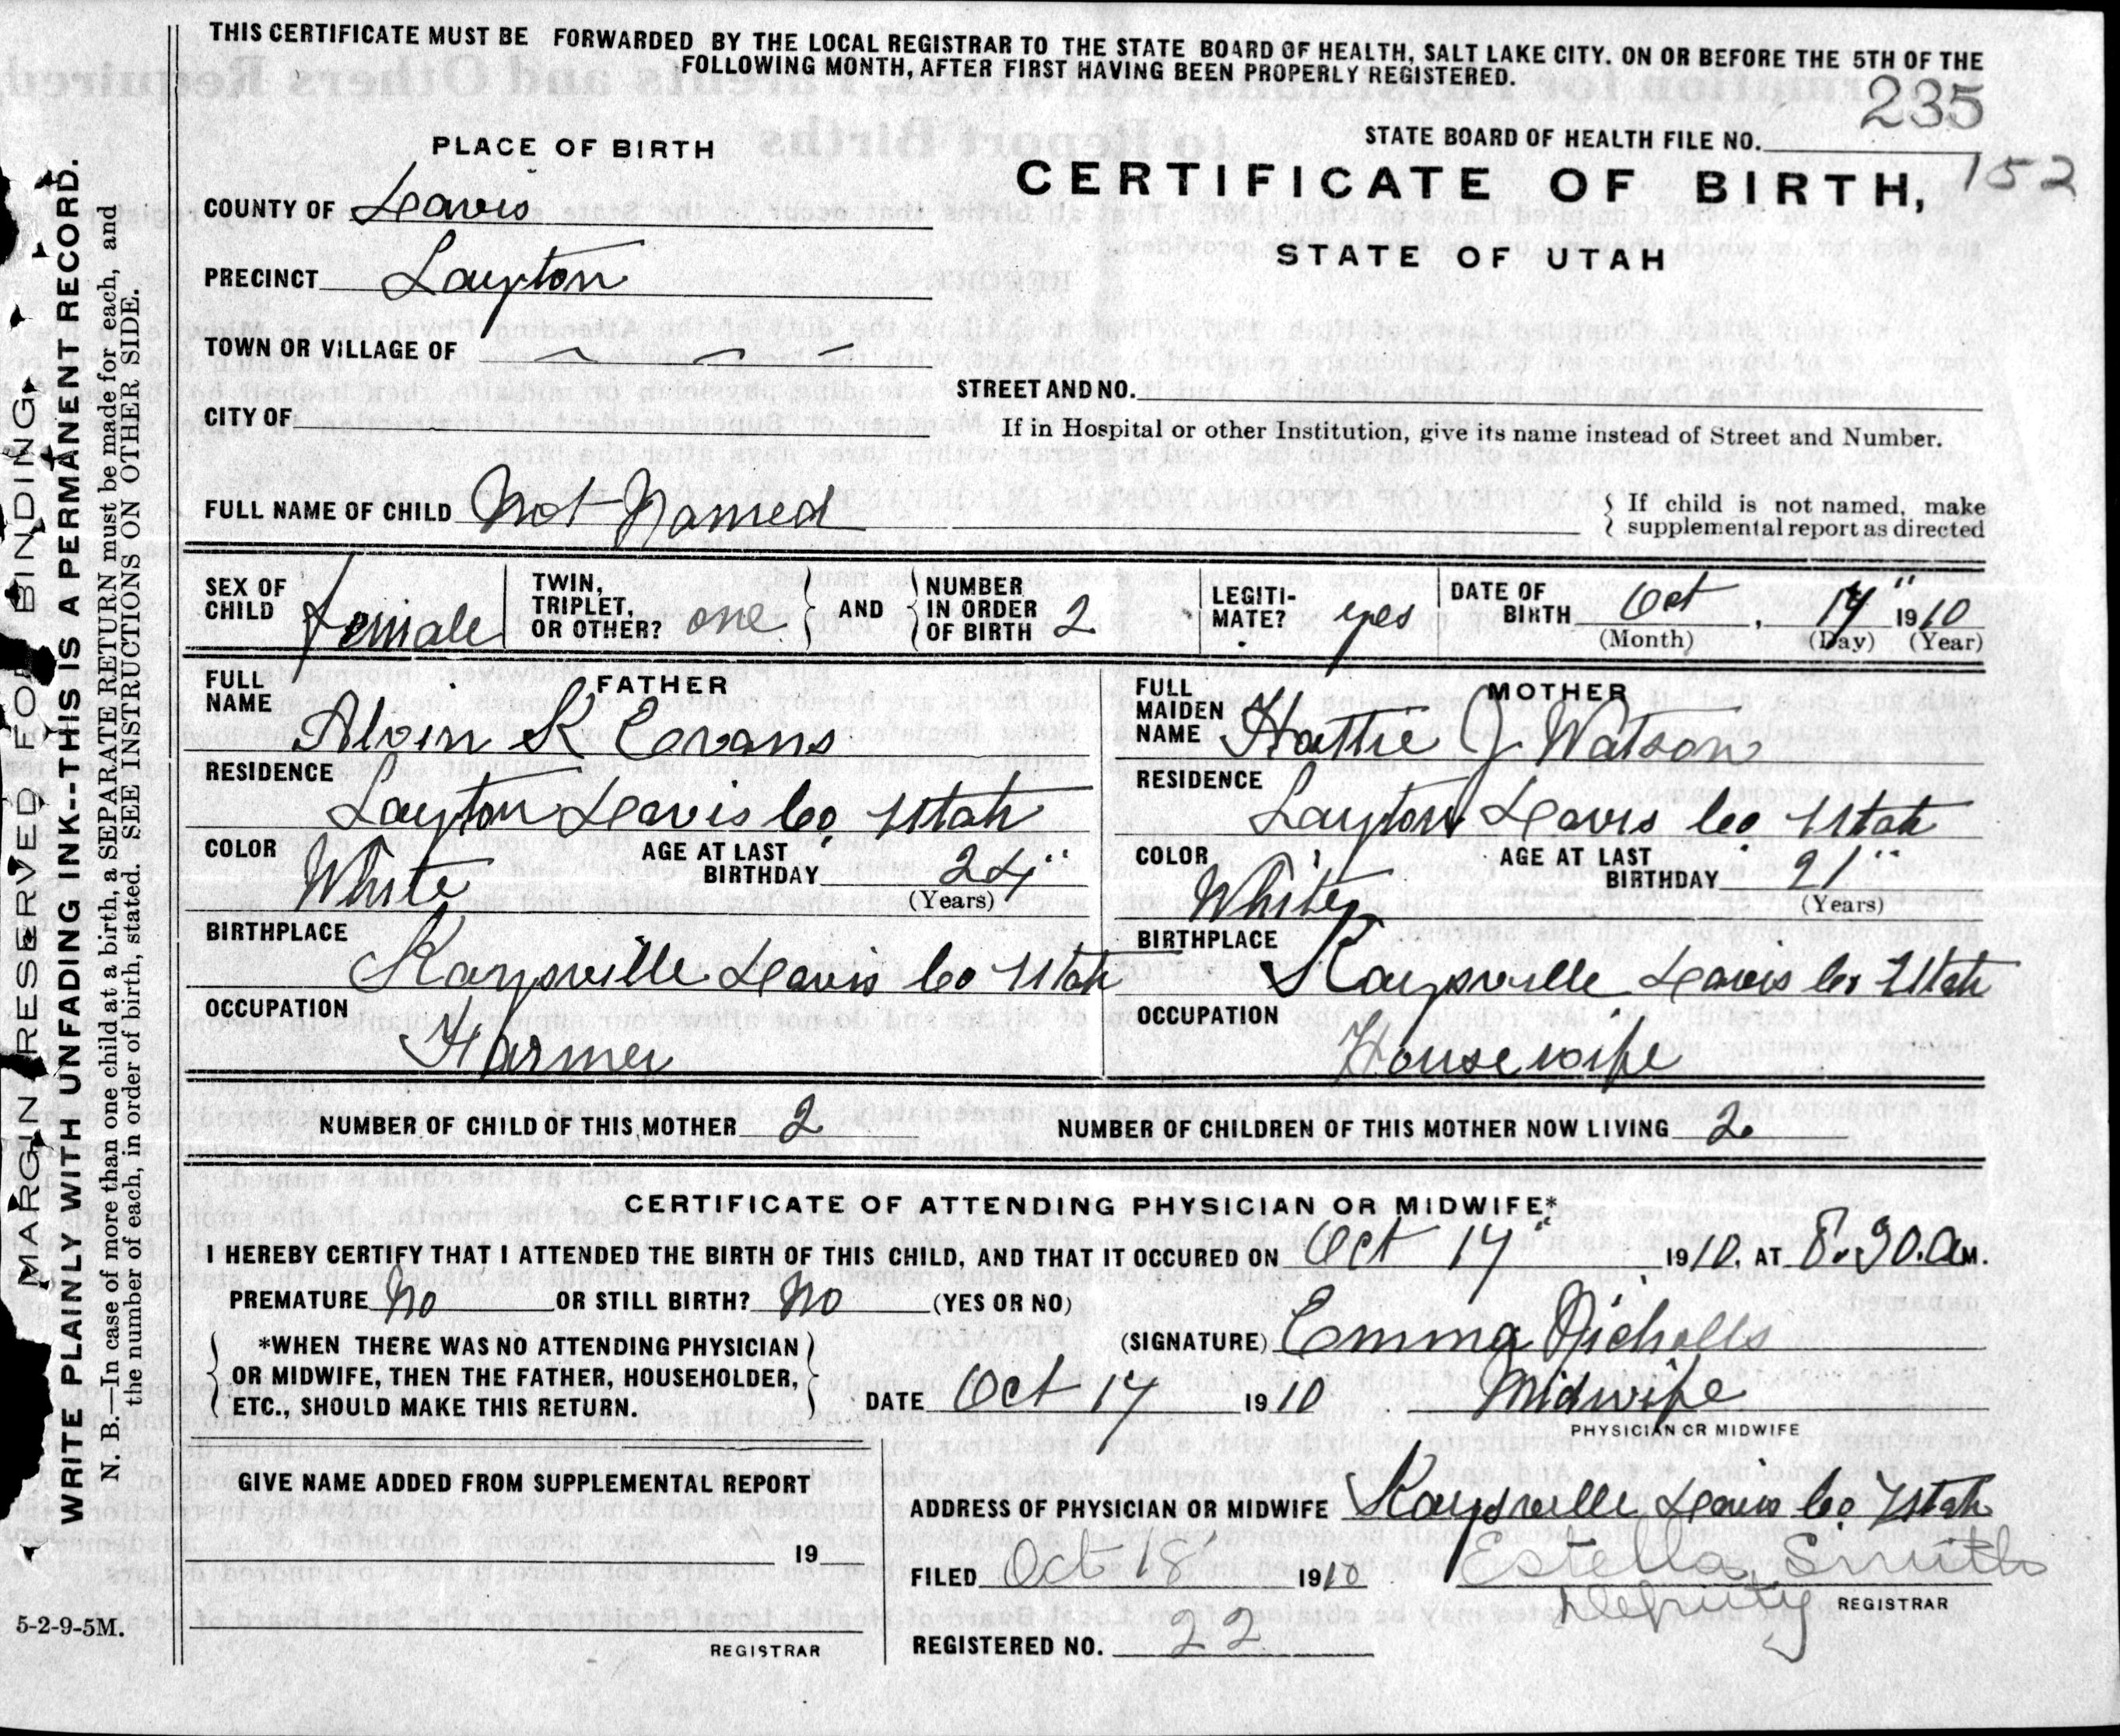 THIS CERTIFICATE MUST BE FORWARDED BY THE LOCAL REGISTRAR TO THE STATE BOARD OF HEALTH, SALT LAKE CITY. ON OR BEFORE THE 5TH OF THE
FOLLOWING MONTH, AFTER FIRST HAVING BEEN PROPERLY REGISTERED.
235
STATE BOARD OF HEALTH FILE NO.
152
PLACE OF BIRTH
CERTIFICATE OF BIRTH,
STATE OF UTAH
COUNTY OF Davis
PRECINCT Layton
TOWN OR VILLAGE OF
CITY OF
STREET AND NO.
If in Hospital or other Institution, give its name instead of Street and Number.
FULL NAME OF CHILD Not Named
If child is not named, make
supplemental report as directed
SEX OF CHILD female
TWIN, TRIPLET, OR OTHER? one
AND
NUMBER IN ORDER OF BIRTH 2
LEGITI-MATE? yes
DATE OF BIRTH Oct, 14" 1910
(Month) (Day) (Year)
FATHER
FULL NAME Alvin K Evans
RESIDENCE
Layton Davis Co. Utah
COLOR White
AGE AT LAST BIRTHDAY 24"
(Years)
BIRTHPLACE
Kaysville Davis Co Utah
OCCUPATION
Farmer
MOTHER
FULL MAIDEN NAME Hattie J Watson
RESIDENCE
Layton Davis Co. Utah
COLOR White
AGE AT LAST BIRTHDAY 21"
(Years)
BIRTHPLACE
Kaysville Davis Co. Utah
OCCUPATION
Housewife
NUMBER OF CHILD OF THIS MOTHER 2
NUMBER OF CHILDREN OF THIS MOTHER NOW LIVING 2
CERTIFICATE OF ATTENDING PHYSICIAN OR MIDWIFE*
I HEREBY CERTIFY THAT I ATTENDED THE BIRTH OF THIS CHILD, AND THAT IT OCCURED ON Oct 14" 1910, AT 8.30.a M.
PREMATURE No OR STILL BIRTH? No (YES OR NO)
*WHEN THERE WAS NO ATTENDING PHYSICIAN
OR MIDWIFE, THEN THE FATHER, HOUSEHOLDER,
ETC., SHOULD MAKE THIS RETURN.
(SIGNATURE) Emma Nicholls
DATE Oct 14 1910 Midwife
PHYSICIAN OR MIDWIFE
GIVE NAME ADDED FROM SUPPLEMENTAL REPORT
19
REGISTRAR
ADDRESS OF PHYSICIAN OR MIDWIFE Kaysville Davis Co. Utah
FILED Oct 18 1910 Estella Smith
Deputy REGISTRAR
REGISTERED NO. 22
5-2-9-5M.
MARGIN RESERVED FOR BINDING.
WRITE PLAINLY WITH UNFADING INK--THIS IS A PERMANENT RECORD.
N. B.—In case of more than one child at a birth, a SEPARATE RETURN must be made for each, and
the number of each, in order of birth, stated. SEE INSTRUCTIONS ON OTHER SIDE.